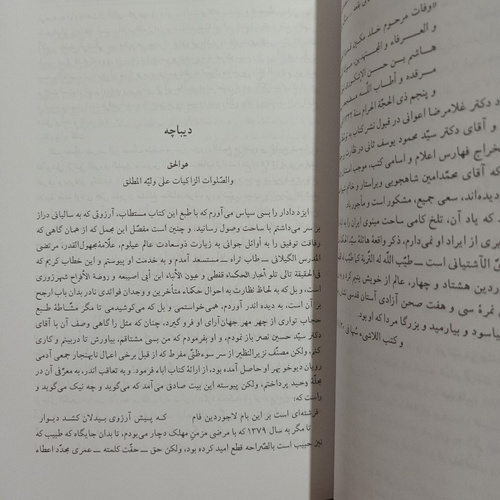 دیباچه
هوالحق
والصّلوات الزاکیات علی ولیّه المطلق
ایزد دادار را بسی سپاس می‌آورم که با طبع این کتاب مستطاب، آرزوئی که به سالیانی دراز
بر سر می‌داشتم با ساحت وصول رسانید. و چنین است مفصّل این مجمل که از همان گاهی که
رفاقت توفیق را به اوائل جوانی به زیارت ذوسعادت عالم عیلوم، علامهٔ مجهول‌القدر، مرتضی
المدرس الگیلانی ــ طاب ثراه ــ مستسعد آمدم و به خدمت او پیوستم و این خطاب کریم که
فی‌الحقیقة تالی تلو أخبار الحکماء قفطی و عیون الأنباء ابن أبی اصیبعه و روضة الأفراح شهرزوری
است، و بل که به لحاظ نظارت به احوال حکماء متأخرین و وجدان فوائدی نادر بدان باب ارجح
بر آن است، به دیده اندر آوردم، همی‌خواستمی و بل که می‌کوشیدمی تا مگر مشّاطهٔ طبع
حجاب تواری از چهر مهر جهان‌آرای او فرو گیرد، چنان که مثل را گاهی وصف آن با آقای
دکتر سیّد حسین نصر باز نمودم، و او بفرمودم که من بسی مشتاقم، بیاورش تا دربینم و کاری
کنم، ولکن مصنّف نزیرالنظیر از سر سوءظنّی مفرط که از قبل برخی اعمال ناهنجار جمعی آدمی
رویان دیوخو بهر او حاصل آمده بود، از ارائهٔ کتاب اباء فرمود. و به تعاقب اندر، به معرّفی آن در
مجلّهٔ وحید پرداختم، ولکن پیوسته این بیت صادق می‌آمد که می‌گوید و چه نیک می‌گوید و
راست که:
فرشته‌ای است بر این بام لاجوردین فام که پیش آرزوی بیدلان کشد دیوار
تا مگر به سال ۱۳۷۹ که با مرضی مزمن مهلک دچار می‌بودم، تا بدان جایگاه که طبیب که
نیز حبیب است بالصّراحه قطع امید کرده بود، ولکن حق ــ جلّت کلمته ــ عمری مجدّد اعطاء
«وفات مرحوم خلد مکین
و العرفاء و المجتهدین
هاشم بن حسن
مرقده و أطاب الله
و پنجم ذی الحجّة الحرام سنهٔ
دکتر غلامرضا اعوانی در قبول نشر کتاب
و آقای دکتر سیّد محمود یوسف ثانی در نظارت
فهارس اعلام و اسامی کتب، موجب
که آقای محمّدامین شاهجویی ویراستار و
دیده‌اند، سعی جمیع، مشکور است و مأجور باد.
که یاد آن، تلخ کامی ساحت مینوی ایران را
از ایراد او نمی‌دارم، ذکر واقعهٔ هائلهٔ
الآشتیانی است ــ طیّب الله له التّربة
هشتاد و چهار، عالم از خویش
غرهٔ سی و هفت صحن آزادی آستان قدسی
و بیارمید و بزرگا مردا که او بود.